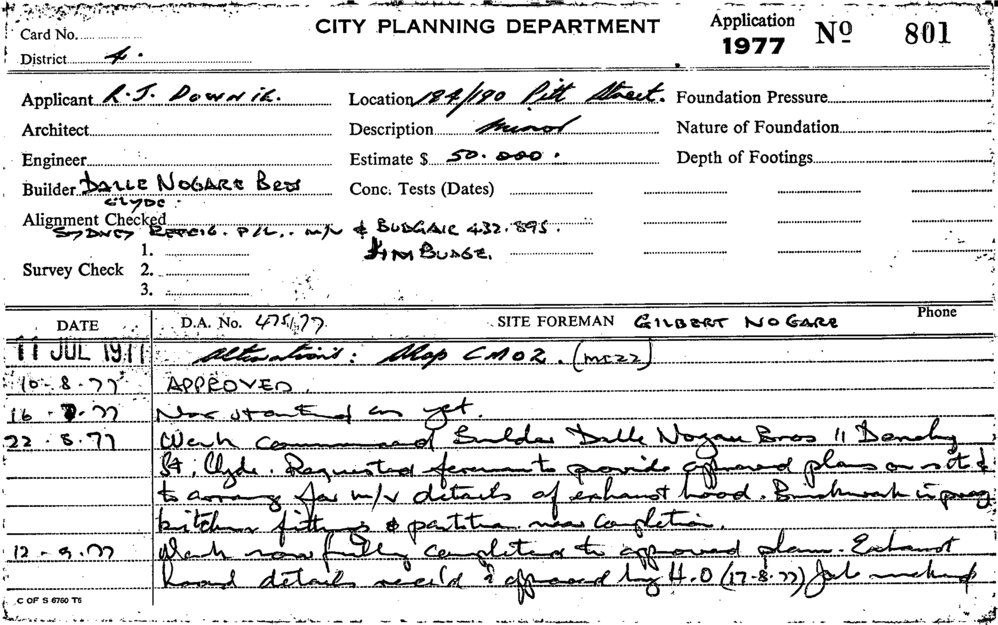 CITY PLANNING DEPARTMENT
Application
1977
No 801
Card No.
District 4.
Applicant R.J. DOWNIE.
Location 184/190 Pitt Street.
Foundation Pressure
Architect
Description Minor
Nature of Foundation
Engineer
Estimate $ 50.000.
Depth of Footings
Builder DALLE NOGARE BROS
CLYDE.
Conc. Tests (Dates)
Alignment Checked
SYDNEY REFRIG. P/L. M/V & BUDGAIR 432.895.
JIM BUDGE.
Survey Check
1.
2.
3.
DATE
D.A. No. 475/77
SITE FOREMAN GILBERT NOGARE
Phone
11 JUL 1977 Alterations: Shop CM02. (MEZZ)
10-8-77 APPROVED.
16 77 Not started as yet.
22-8-77 Work commenced Builder Dalle Nogare Bros 11
St, Clyde. Requested foreman to provide approved plans on site &
to arrange for m/v details of exhaust hood. Brickwork in prog
kitchen fittings & partition near completion.
12-9-77 Work now fully completed to approved plan. Exhaust
hood details rec'd & approved by H.O (17-8-77) Job
C OF S 6760 T6